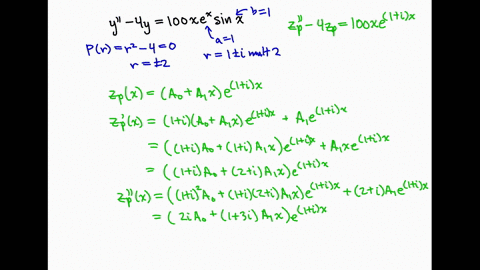 y'' − 4y = 100xeˣ sin x ← b=1
a=1
P(r) = r² − 4 = 0
r = ±2
r = 1 ± i mult 2
zₚ'' − 4zₚ = 100xe^{(1+i)x}
zₚ(x) = (A₀ + A₁x)e^{(1+i)x}
zₚ'(x) = (1+i)(A₀ + A₁x)e^{(1+i)x} + A₁e^{(1+i)x}
= ((1+i)A₀ + (1+i)A₁x)e^{(1+i)x} + A₁xe^{(1+i)x}
= ((1+i)A₀ + (2+i)A₁x)e^{(1+i)x}
zₚ''(x) = ((1+i)²A₀ + (1+i)(2+i)A₁x)e^{(1+i)x} + (2+i)A₁e^{(1+i)x}
= (2iA₀ + (1+3i)A₁x)e^{(1+i)x}